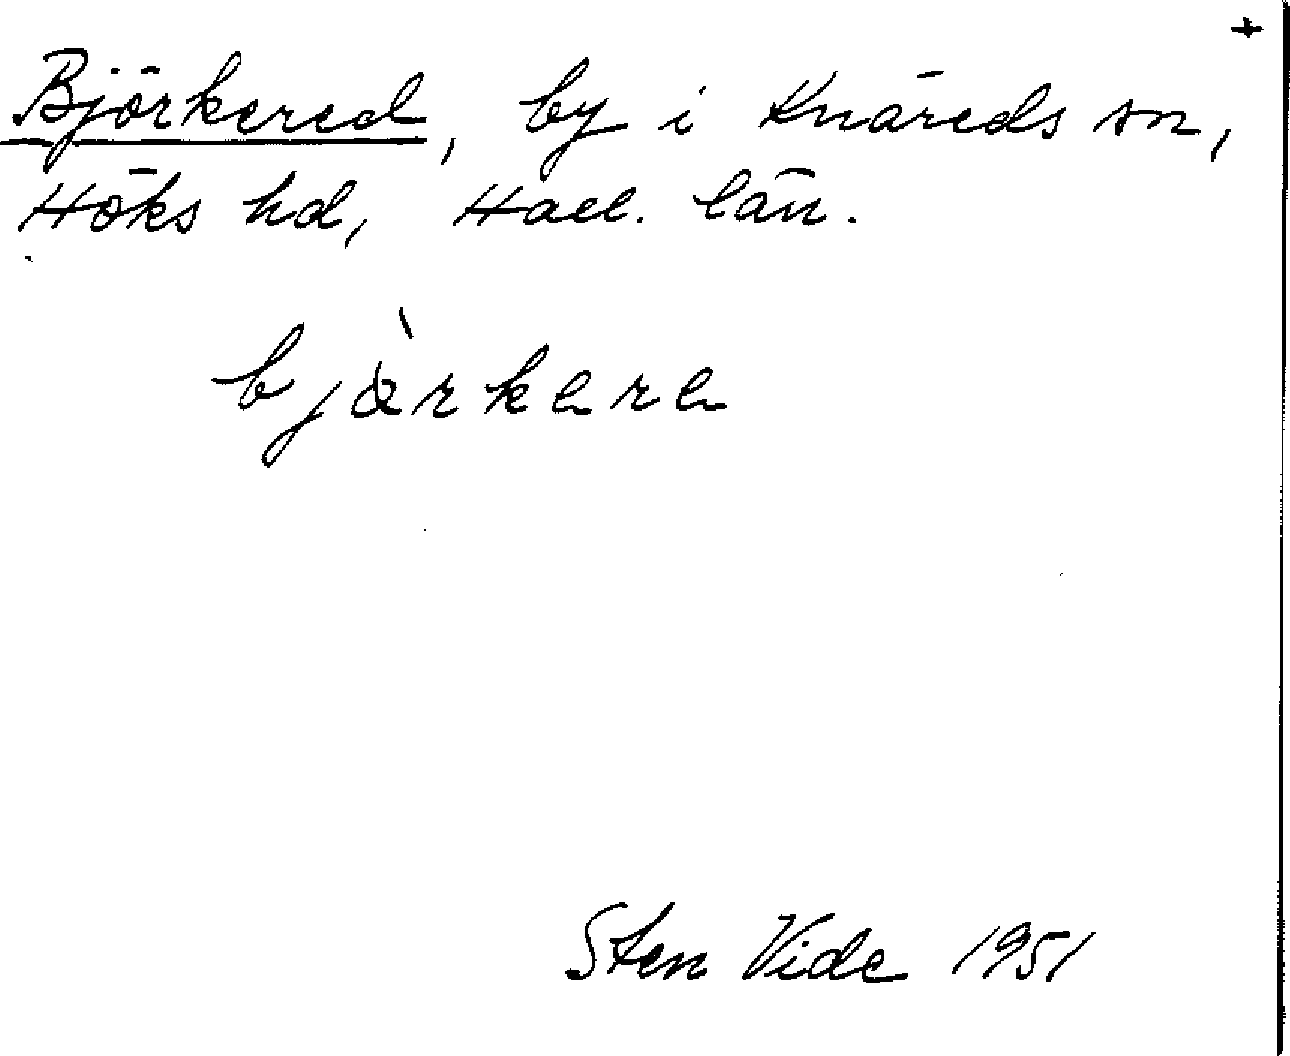 +
Björkered, by i Knäreds sn,
Höks hd, Hall. län.
bjærkere
Sten Vide 1951